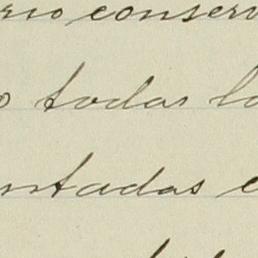 rio conserv
o todas lo
ntadas e